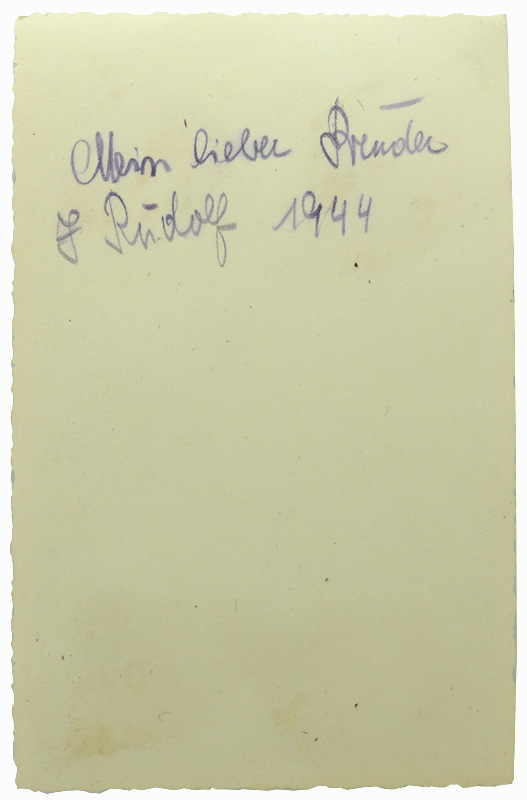 Mein lieber Bruder
J Rudolf 1944